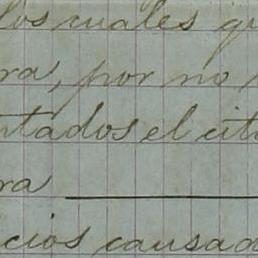 los cuales qu
ra, por no
ntados el cit
ra
cios causad